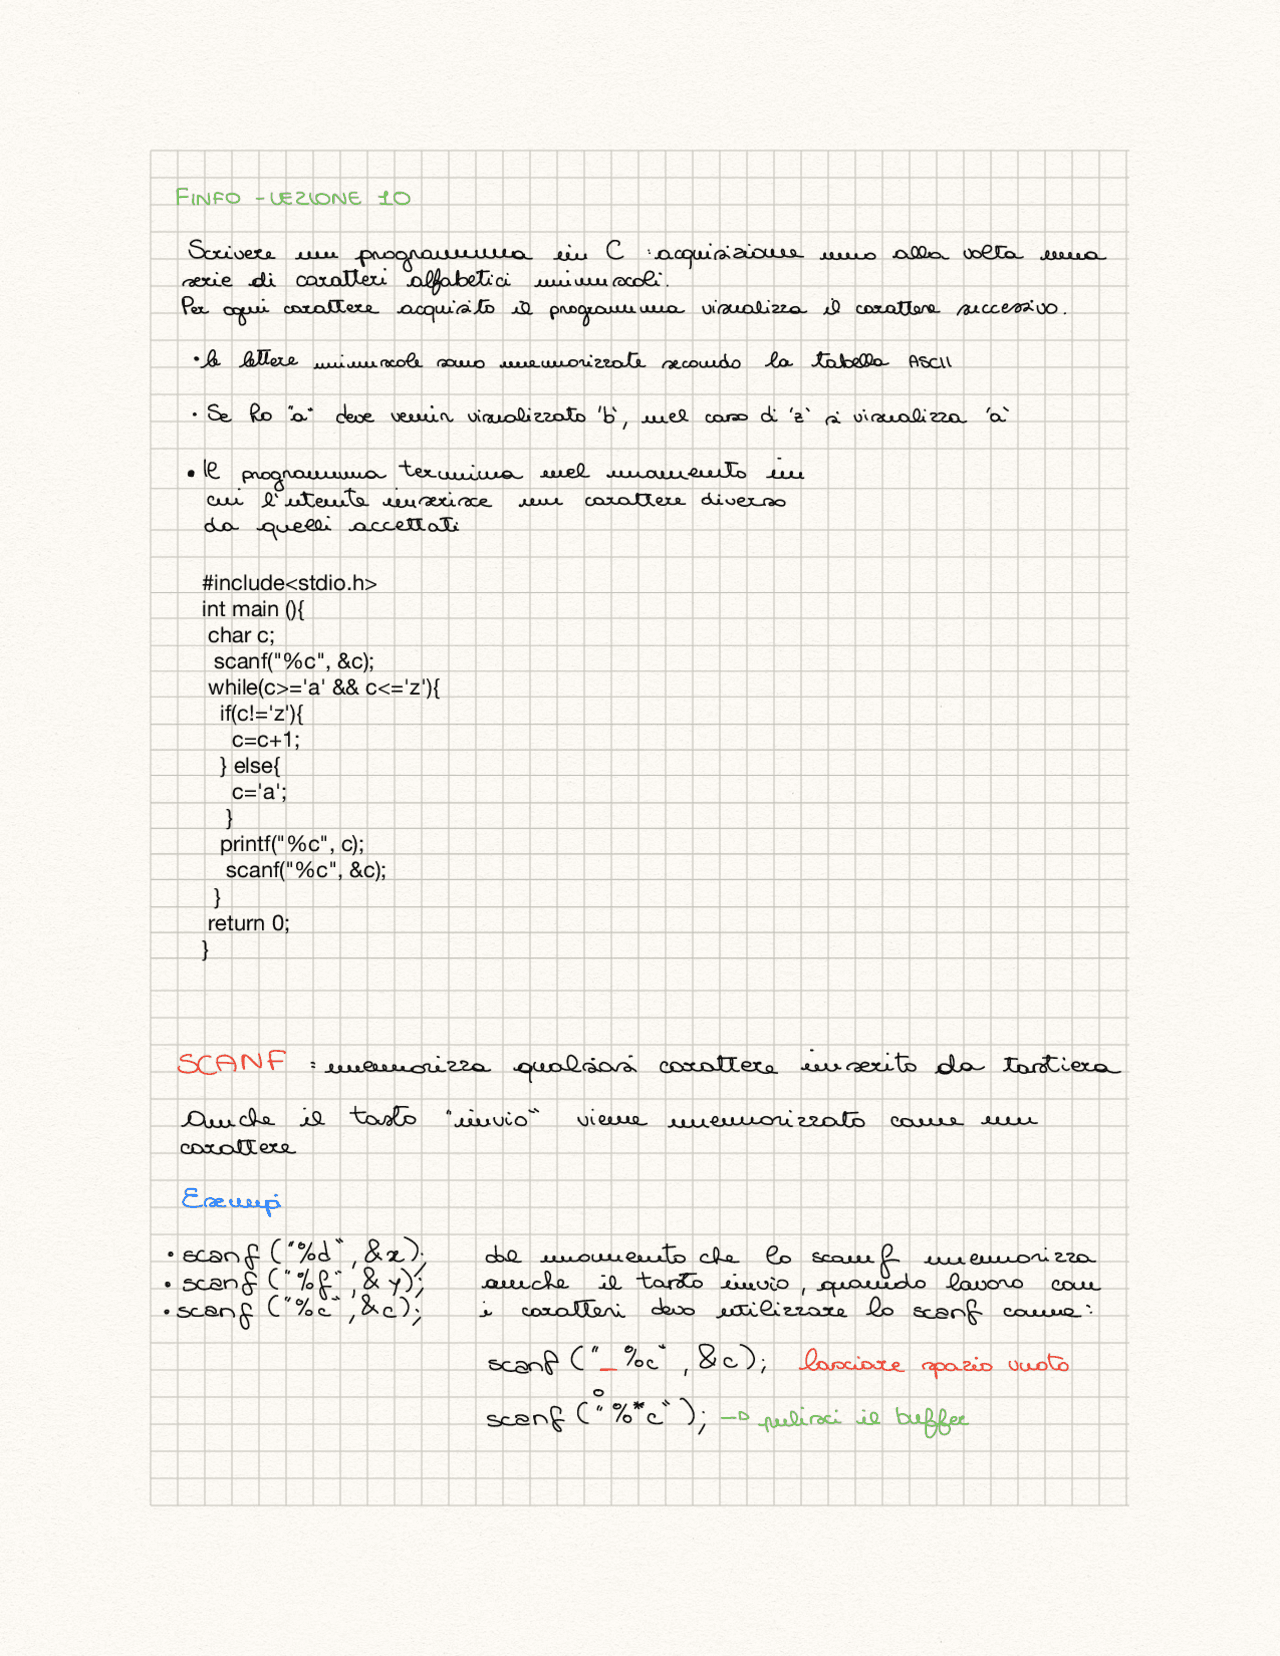 FINFO - LEZIONE 10
Scrivere un programma in C : acquisizione uno alla volta una
serie di caratteri alfabetici minuscoli.
Per ogni carattere acquisito il programma visualizza il carattere successivo.
• le lettere minuscole sono memorizzate secondo la tabella ASCII
• Se ho "a" deve venir visualizzato 'b', nel caso di 'z' si visualizza 'a'
• Il programma termina nel momento in
cui l'utente inserisce un carattere diverso
da quelli accettati
#include<stdio.h>
int main (){
char c;
scanf("%c", &c);
while(c>='a' && c<='z'){
if(c!='z'){
c=c+1;
} else{
c='a';
}
printf("%c", c);
scanf("%c", &c);
}
return 0;
}
SCANF : memorizza qualsiasi carattere inserito da tastiera
Anche il tasto "invio" viene memorizzato come un
carattere
Esempi
• scanf ("%d", &x);
• scanf ("%f", &y);
• scanf ("%c", &c);
dal momento che lo scanf memorizza
anche il tasto invio, quando lavoro con
i caratteri devo utilizzare lo scanf come:
scanf ("_%c", &c); lasciare spazio vuoto
o
scanf ("%*c"); → pulisci il buffer